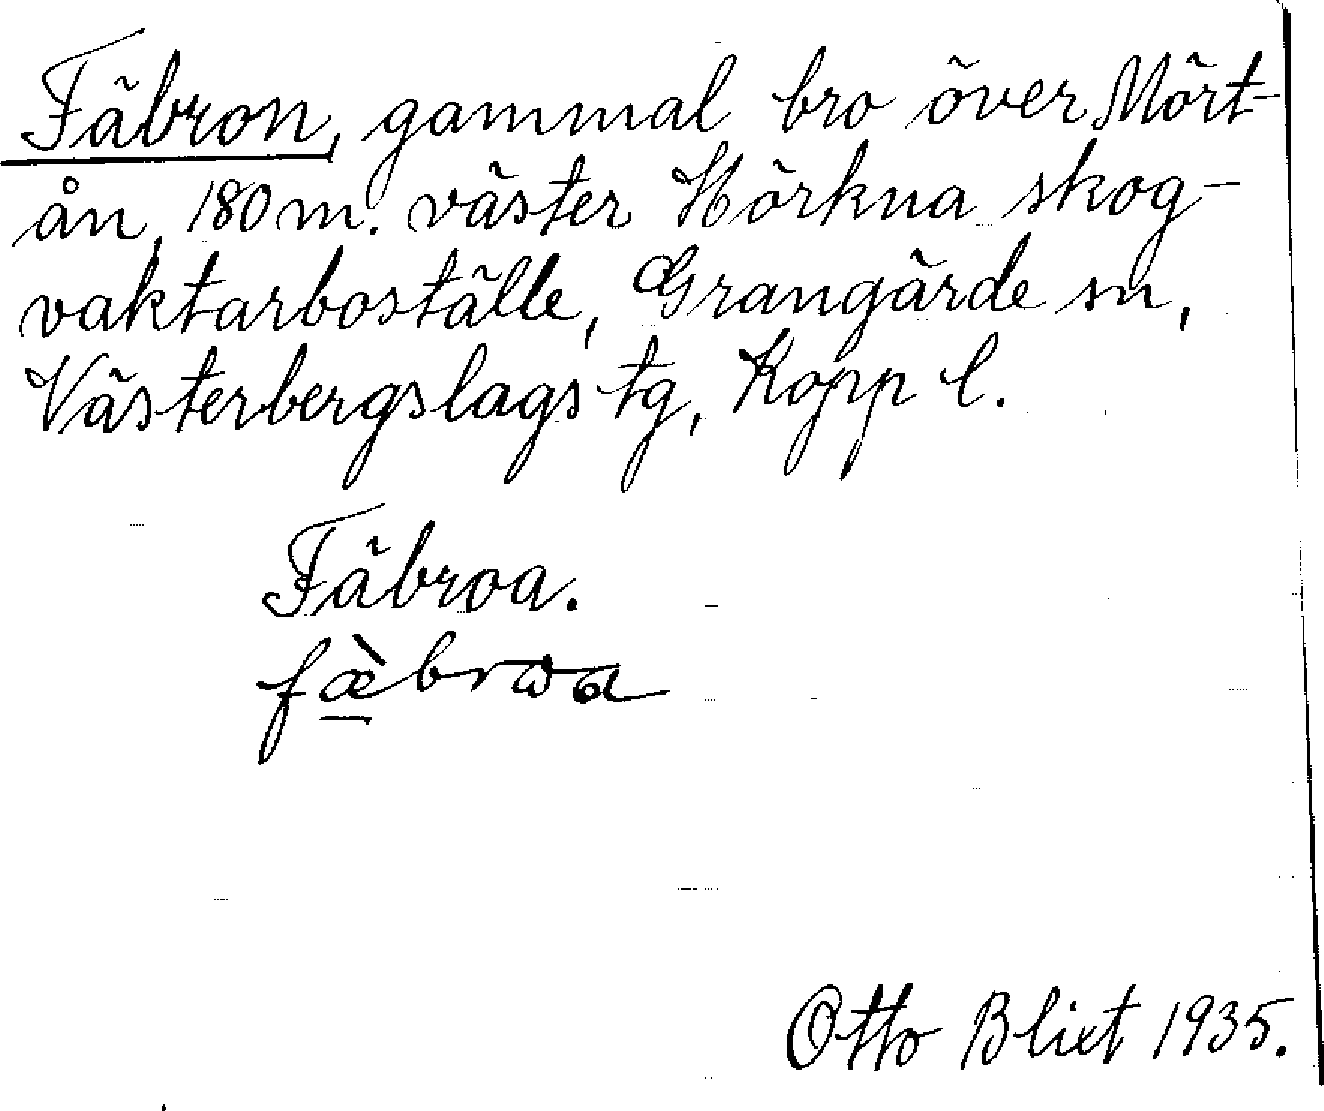 Fäbron, gammal bro över Mört-
ån, 180 m. väster Hörkna skog-
vaktarboställe, Grangärde sn,
Västerbergslags tg, Kopp l.
Fäbroa.
fæ̀brωa
Otto Blixt 1935.